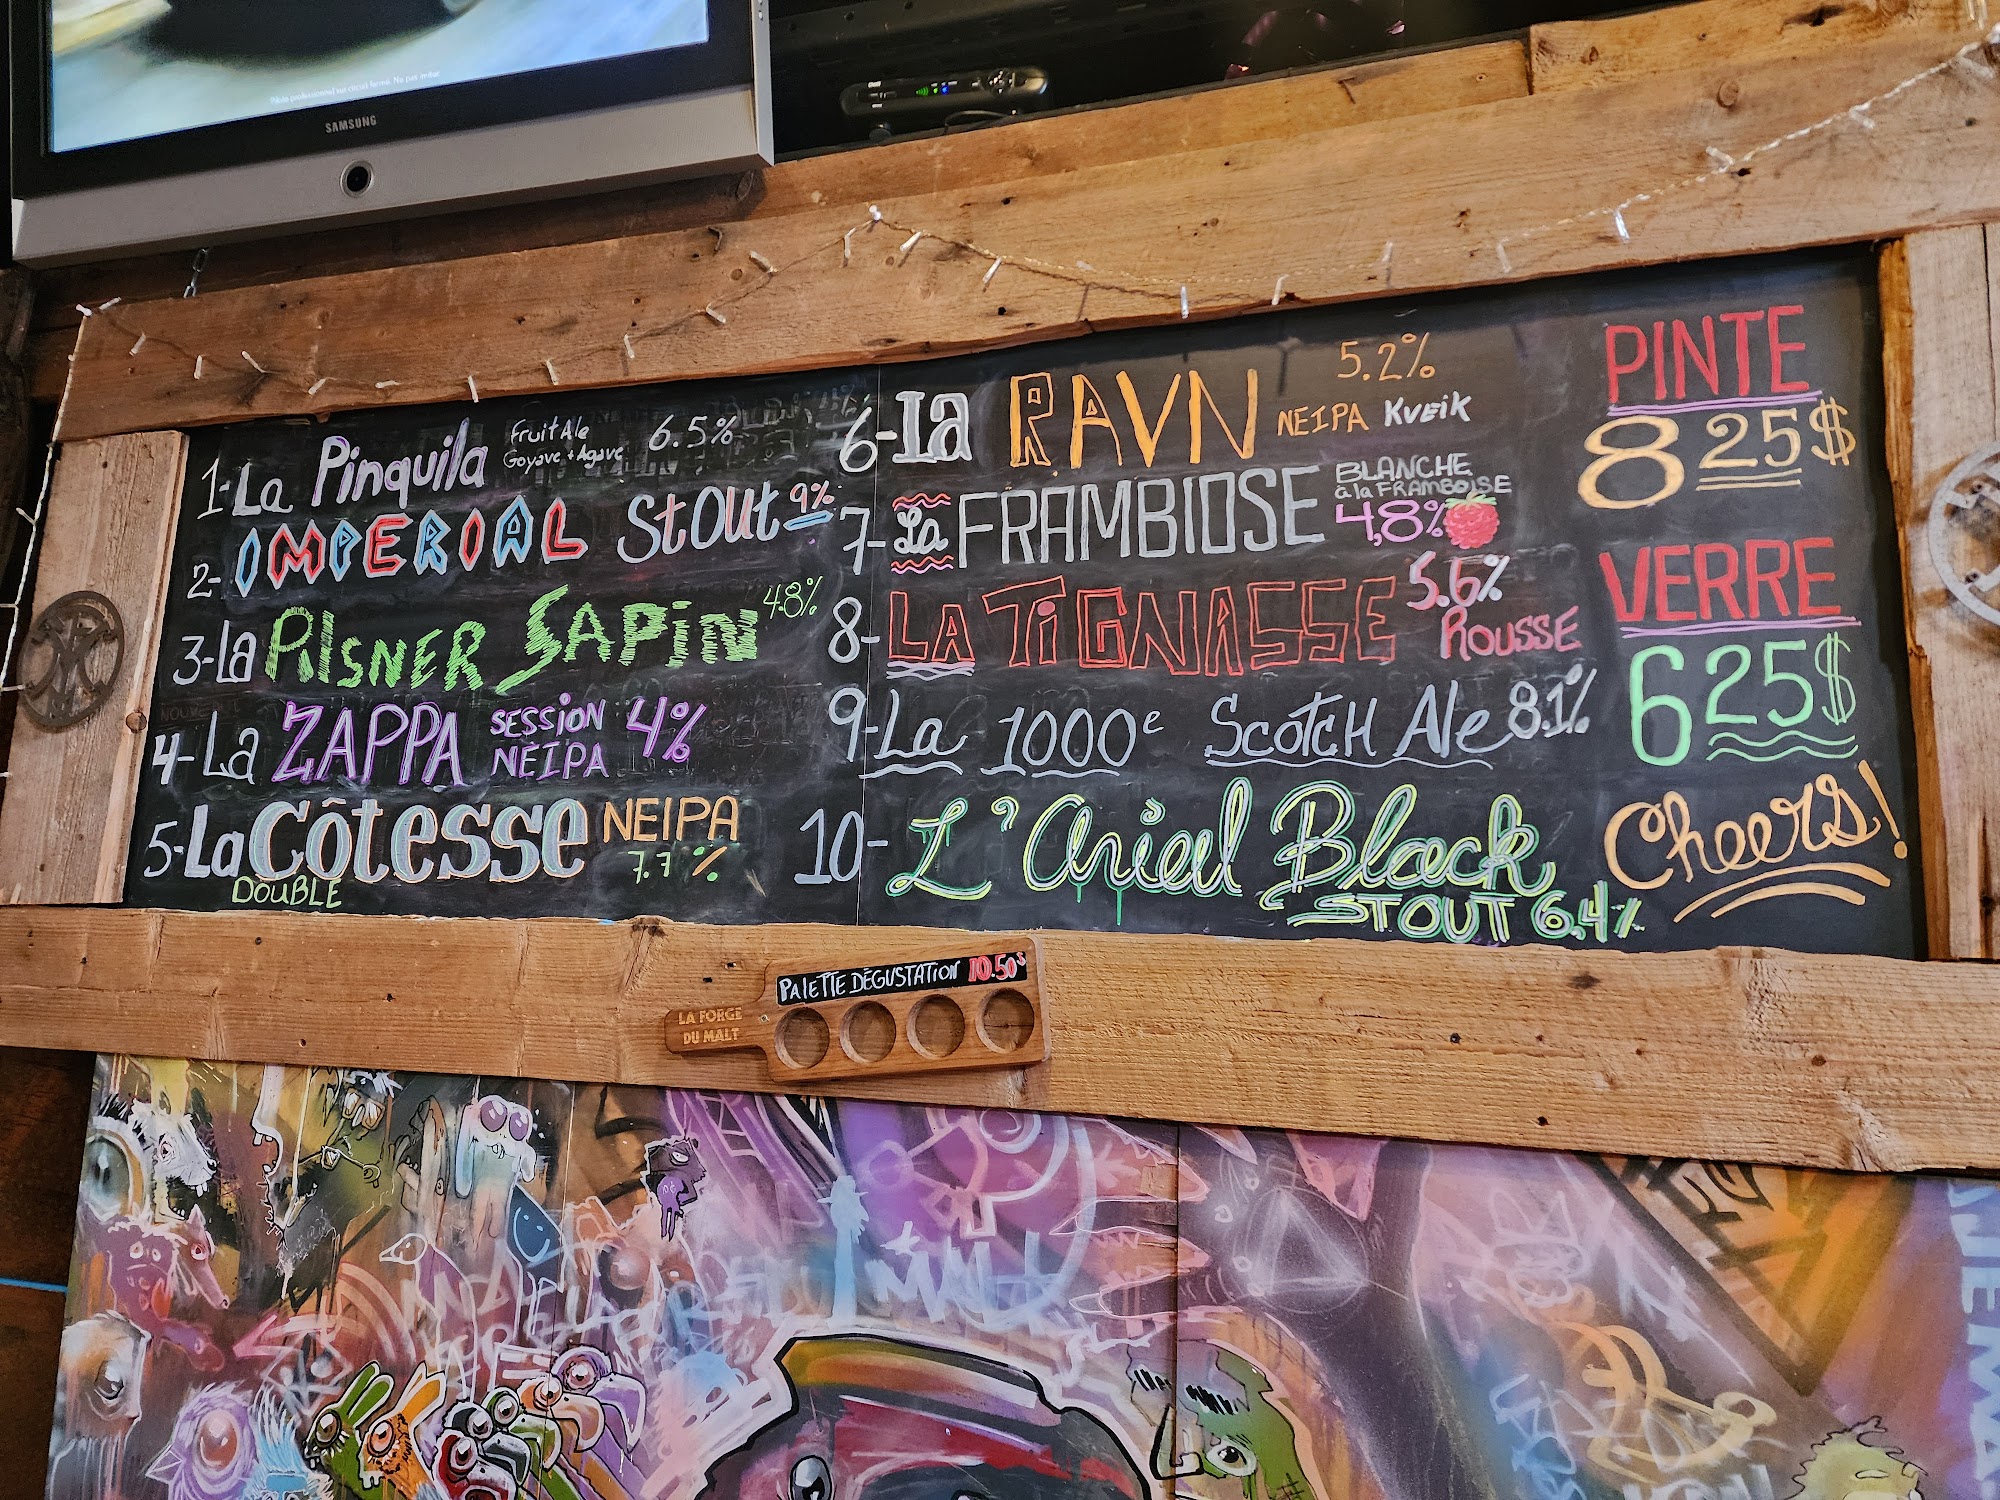 Pilote professionnel sur circuit fermé. Ne pas imiter
SAMSUNG
1-La Pinquila Fruit Ale Goyave + Agave 6.5%
2- IMPERIAL Stout 9%
3-La PILSNER SAPIN 4.8%
4-La ZAPPA SESSION NEIPA 4%
5-La Côtesse NEIPA 7.7%
DOUBLE
6-La RAVN NEIPA KVEIK 5.2%
7-La FRAMBIOSE BLANCHE à la FRAMBOISE 4,8%
8-LA TIGNASSE 5.6% ROUSSE
9-La 1000e Scotch Ale 8.1%
10- L'Ariel Black
STOUT 6.4%
PINTE
8 25$
VERRE
6 25$
Cheers!
PALETTE DÉGUSTATION 10.50$
LA FORGE
DU MALT